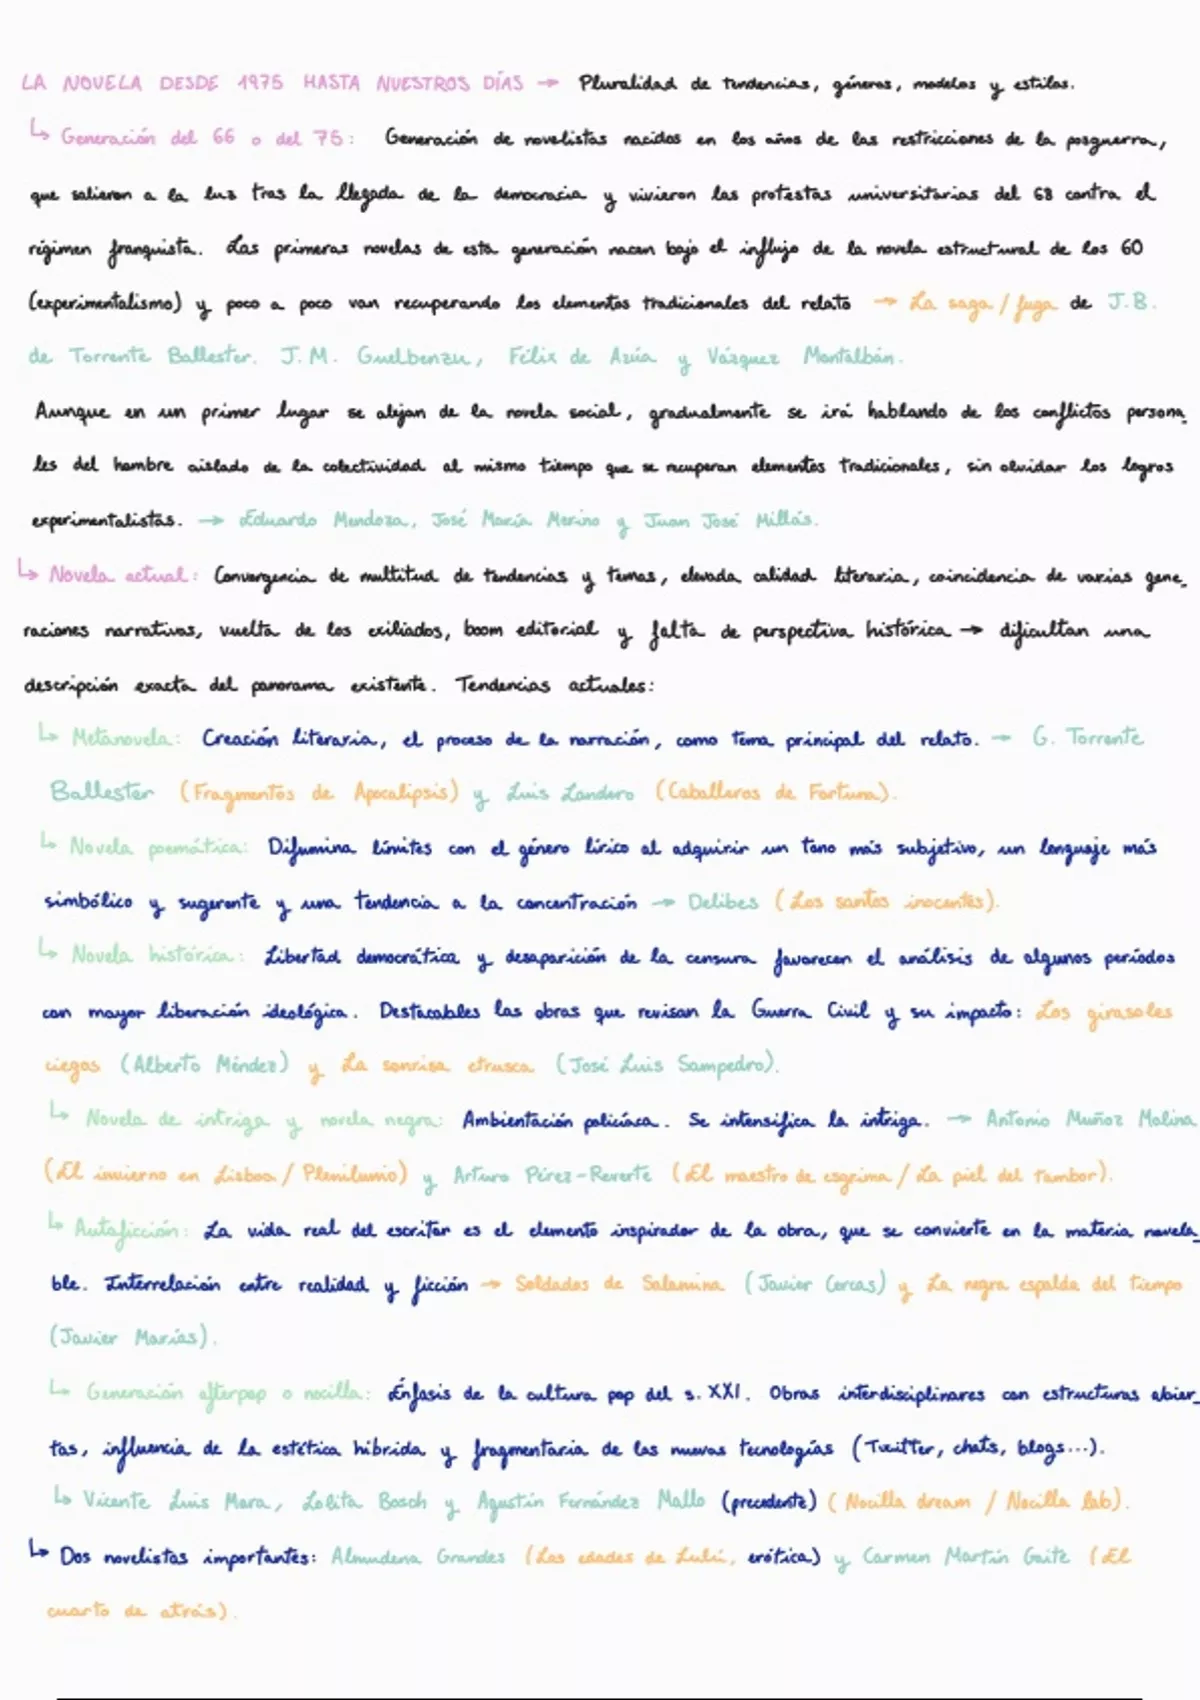 LA NOVELA DESDE 1975 HASTA NUESTROS DÍAS → Pluralidad de tendencias, géneros, modelos y estilos.
↳ Generación del 66 o del 75: Generación de novelistas nacidos en los años de las restricciones de la posguerra,
que salieron a la luz tras la llegada de la democracia y vivieron las protestas universitarias del 68 contra el
régimen franquista. Las primeras novelas de esta generación nacen bajo el influjo de la novela estructural de los 60
(experimentalismo) y poco a poco van recuperando los elementos tradicionales del relato → La saga / fuga de J.B.
de Torrente Ballester. J.M. Guelbenzu, Félix de Azúa y Vázquez Montalbán.
Aunque en un primer lugar se alejan de la novela social, gradualmente se irá hablando de los conflictos persona_
les del hombre aislado de la colectividad al mismo tiempo que se recuperan elementos tradicionales, sin olvidar los logros
experimentalistas. → Eduardo Mendoza, José María Merino y Juan José Millás.
↳ Novela actual: Convergencia de multitud de tendencias y temas, elevada calidad literaria, coincidencia de varias gene_
raciones narrativas, vuelta de los exiliados, boom editorial y falta de perspectiva histórica → dificultan una
descripción exacta del panorama existente. Tendencias actuales:
↳ Metanovela: Creación literaria, el proceso de la narración, como tema principal del relato. → G. Torrente
Ballester (Fragmentos de Apocalipsis) y Luis Landero (Caballeros de Fortuna).
↳ Novela poemática: Difumina límites con el género lírico al adquirir un tono más subjetivo, un lenguaje más
simbólico y sugerente y una tendencia a la concentración → Delibes (Los santos inocentes).
↳ Novela histórica: Libertad democrática y desaparición de la censura favorecen el análisis de algunos períodos
con mayor liberación ideológica. Destacables las obras que revisan la Guerra Civil y su impacto: Los girasoles
ciegos (Alberto Méndez) y La sonrisa etrusca (José Luis Sampedro).
↳ Novela de intriga y novela negra: Ambientación policíaca. Se intensifica la intriga. → Antonio Muñoz Molina
(El invierno en Lisboa / Plenilunio) y Arturo Pérez-Reverte (El maestro de esgrima / La piel del tambor).
↳ Autoficción: La vida real del escritor es el elemento inspirador de la obra, que se convierte en la materia novela_
ble. Interrelación entre realidad y ficción → Soldados de Salamina (Javier Cercas) y La negra espalda del tiempo
(Javier Marías).
↳ Generación afterpop o nocilla: Énfasis de la cultura pop del s. XXI. Obras interdisciplinares con estructuras abier_
tas, influencia de la estética híbrida y fragmentaria de las nuevas tecnologías (Twitter, chats, blogs...).
↳ Vicente Luis Mora, Lolita Bosch y Agustín Fernández Mallo (precedente) (Nocilla dream / Nocilla lab).
↳ Dos novelistas importantes: Almudena Grandes (Las edades de Lulú, erótica) y Carmen Martín Gaite (El
cuarto de atrás).